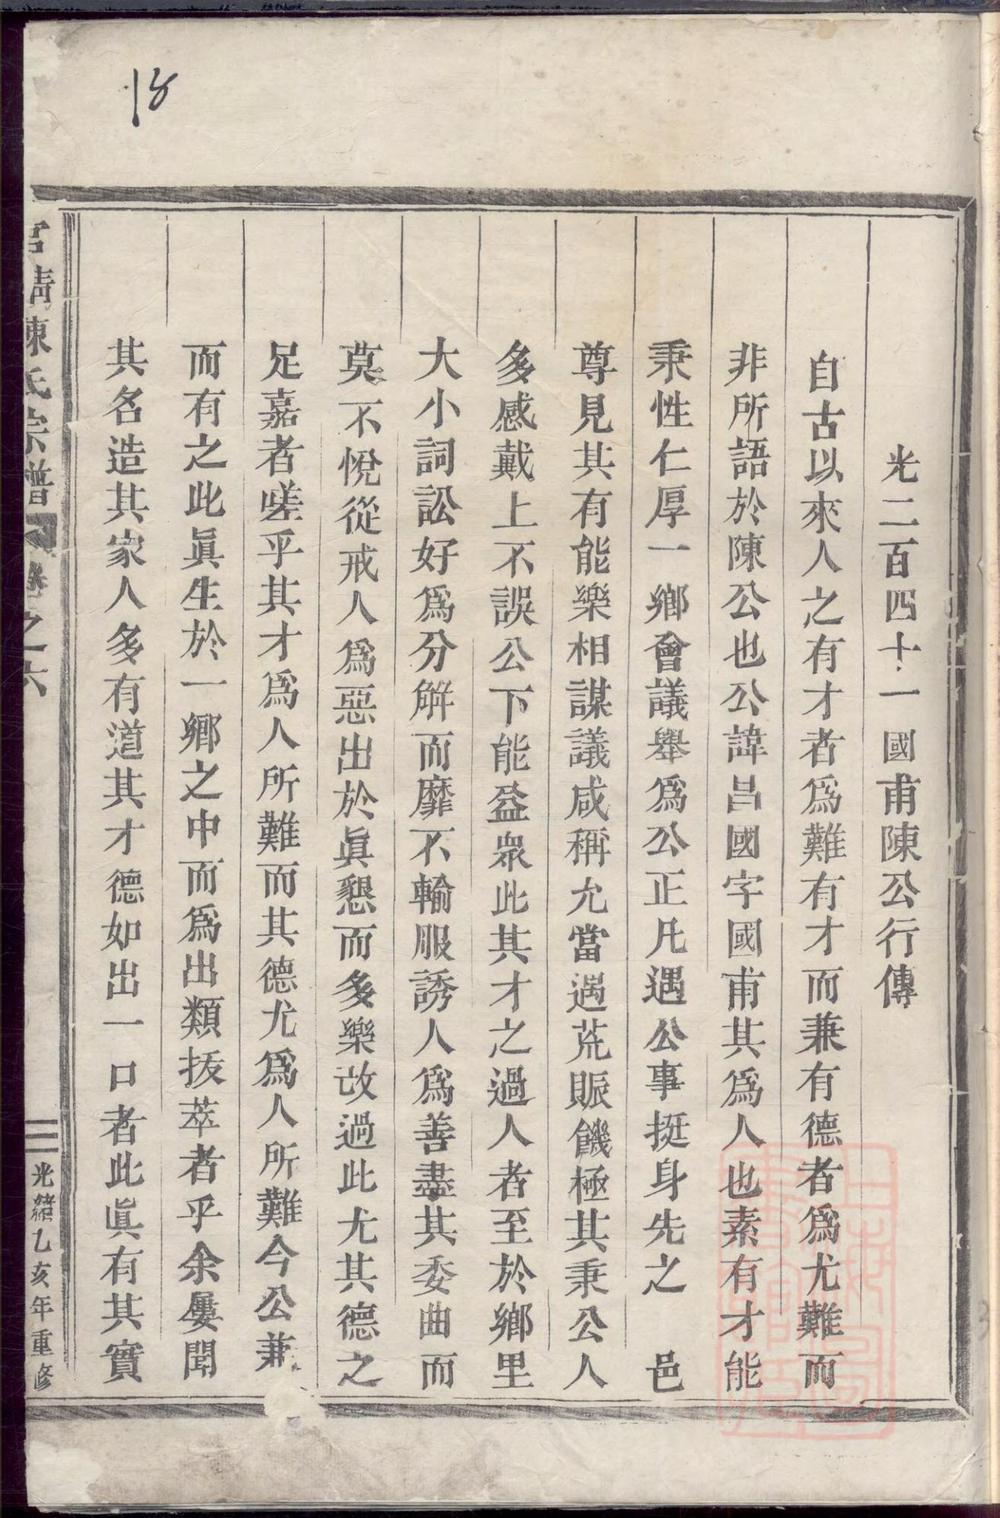 18
光二百四十一國甫陳公行傳
自古以來人之有才者爲難有才而兼有德者爲尤難而
非所語於陳公也公諱昌國字國甫其爲人也素有才能
秉性仁厚一鄉會議舉爲公正凡遇公事挺身先之 邑
尊見其有能樂相謀議咸稱允當遇荒賑饑極其秉公人
多感戴上不誤公下能益衆此其才之過人者至於鄉里
大小詞訟好爲分解而靡不輸服誘人爲善盡其委曲而
莫不悅從戒人爲惡出於眞懇而多樂改過此尤其德之
足嘉者嗟乎其才爲人所難而其德尤爲人所難今公兼
而有之此眞生於一鄉之中而爲出類拔萃者乎余屢聞
其名造其家人多有道其才德如出一口者此眞有其實
陳氏宗譜 卷之六
二 光緒乙亥年重修